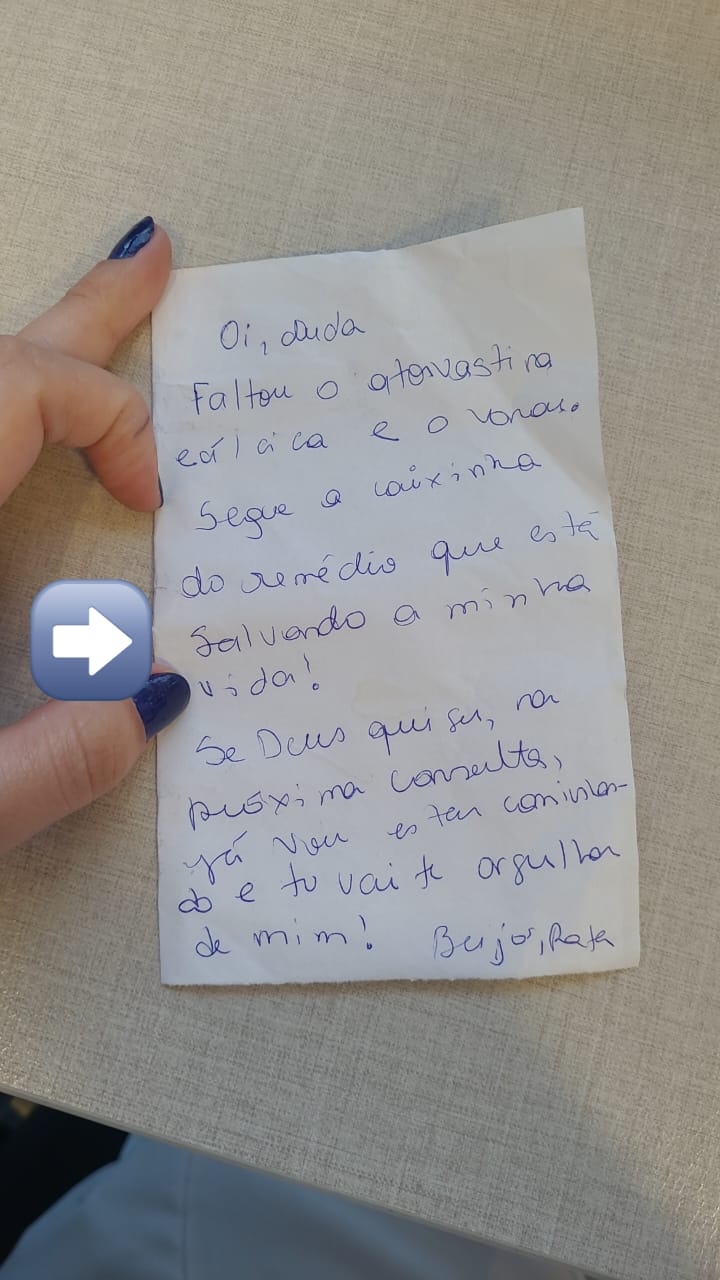 Oi, duda
Faltou o atorvastina
cálcica e o vonau.
Segue a caixinha
do remédio que está
salvando a minha
vida!
Se Deus quiser, na
próxima consulta,
já vou estar caminhan-
do e tu vai te orgulhar
de mim! Beijos, Rafa